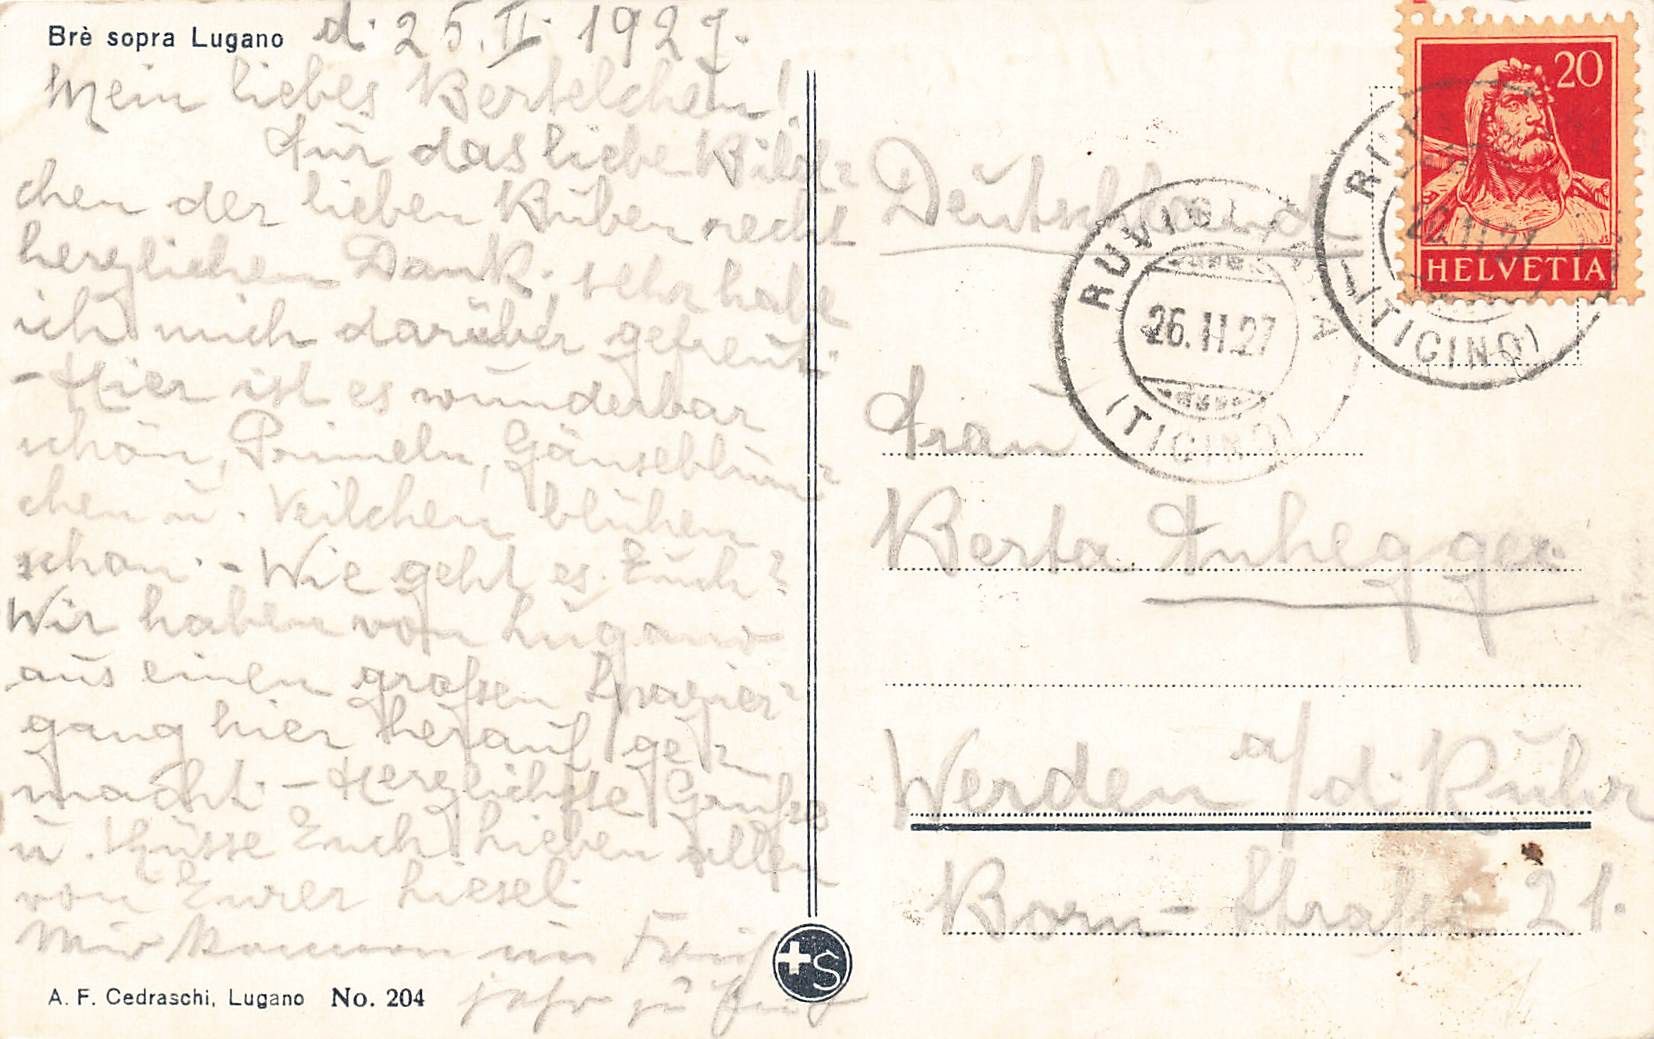 Brè sopra Lugano d. 25. II. 1927.
Mein liebes Bertelchen!
Für das liebe Bild-
chen der lieben Buben recht
herzlichen Dank, sehr habe
ich mich darüber gefreut.
- Hier ist es wunderbar
schön, Primeln, Gänseblüm-
chen u. Veilchen blühen
schon. - Wie geht es Euch?
Wir haben von Lugano
aus einen großen Spazier-
gang hier herauf ge-
macht. - Herzlichste Grüße
u. Küsse Euch lieben allen
von Eurer Liesel.
Wir kommen im Früh
jahr zu Euch
A. F. Cedraschi, Lugano No. 204
+S
20
HELVETIA
RUVIGLIANA
26.II.27
(TICINO)
(TICINO)
Deutschland
Frau
Berta Anhegger
Werden a/d. Ruhr
Born-Straße 21.